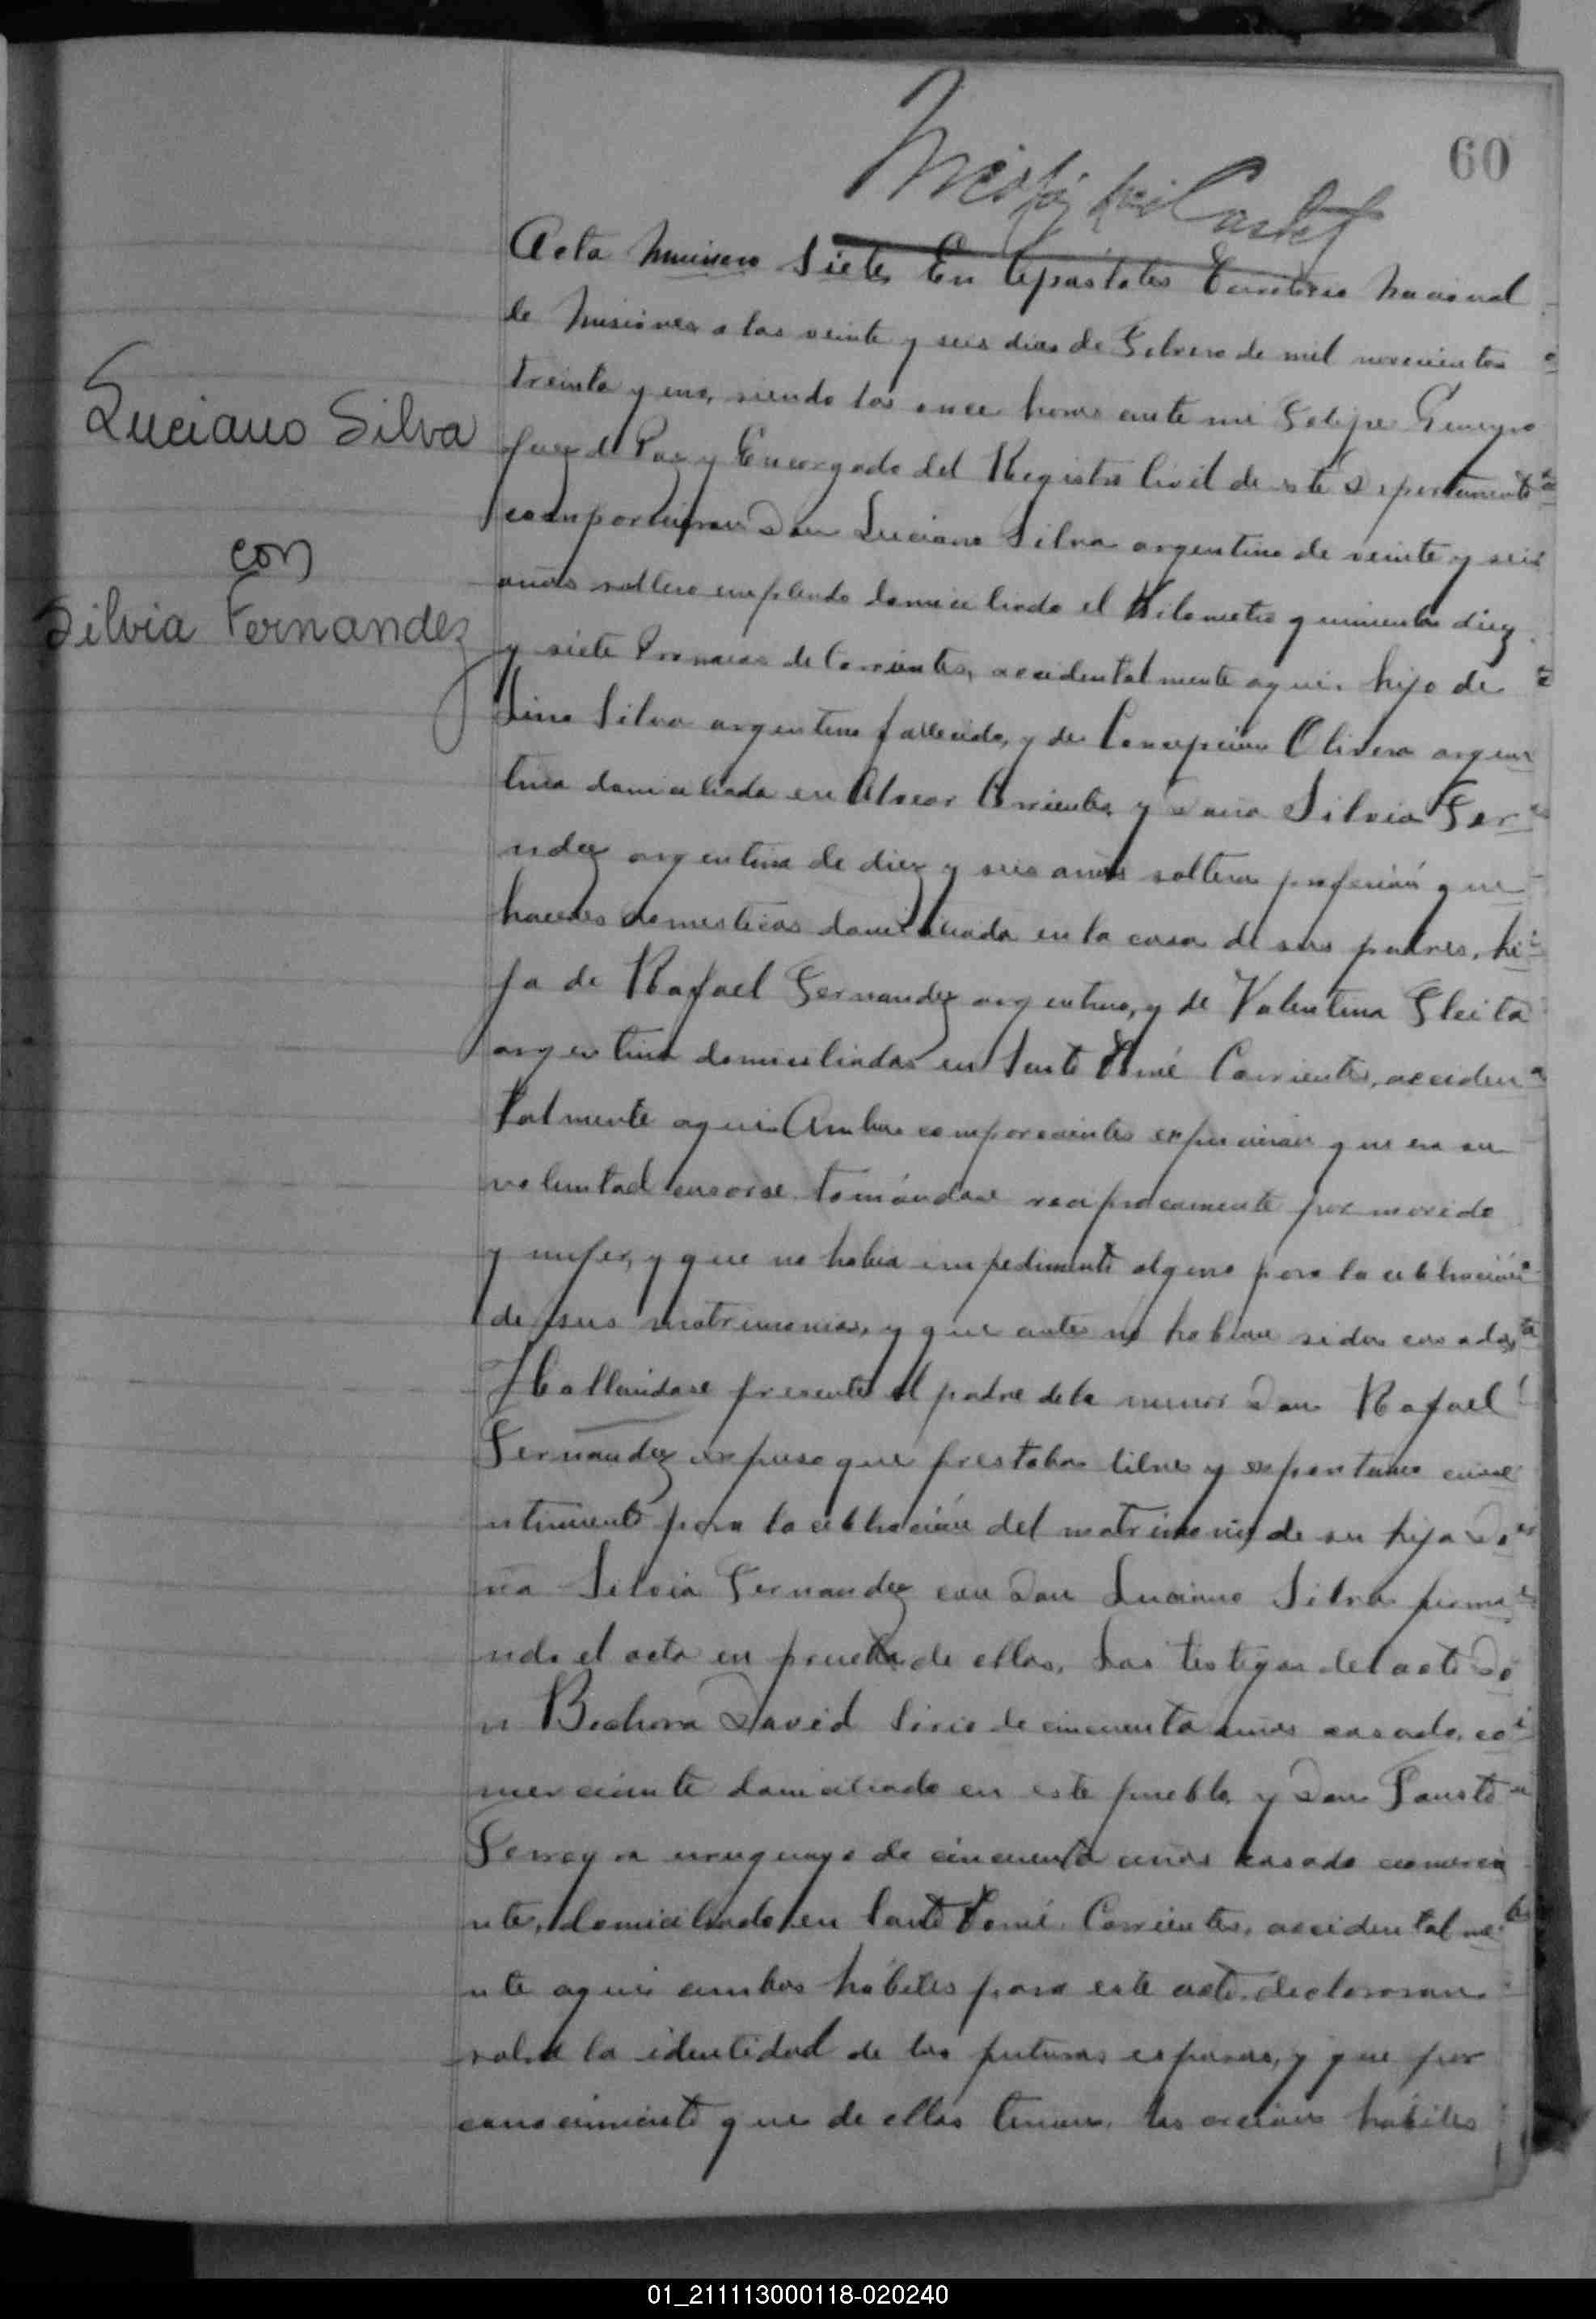 60
Luciano Silva
con
Silvia Fernandez
Acta Numero Siete En Apostoles Territorio Nacional
de Misiones a los veinte y seis dias de Febrero de mil novecientos
treinta y uno, siendo las once horas ante mi Felipe
Juez de Paz y Encargado del Registro Civil de este Departamento
comparecieron Don Luciano Silva argentino de veinte y seis
años soltero empleado domiciliado el Kilometro quinientos diez
y siete Provincia de Corrientes, accidentalmente aqui hijo de
Lino Silva argentino fallecido, y de Concepcion Olivera argen
tina domiciliada en Alvear Corrientes, y Doña Silvia Fer
ndez argentina de diez y seis años soltera profesión que
haceres domesticos domiciliada en la casa de sus padres, hi
ja de Rafael Fernandez argentino, y de Valentina Fleita
argentina domiciliados en Santo Tomé Corrientes, acciden
talmente aqui. Ambos comparecientes expusieron que era su
voluntad casarse tomándose reciprocamente por marido
y mujer, y que no habia impedimento alguno para la celebracion
de sus matrimonios, y que antes no habian sidos casados
Hallandose presente el padre de la menor Don Rafael
Fernandez expuso que prestaba libre y expontaneo conse
ntimiento para la celebración del matrimonio de su hija Do
ña Silvia Fernandez con Don Luciano Silva firma
ndo el acta en prueba de ellos. Los testigos del acto Do
n Bechara David Sirio de cincuenta años casado, co
merciante domiciliado en este pueblo, y Don Fausto
Ferreyra uruguayo de cincuenta años casado comercia
nte, domiciliado en Santo Tomé Corrientes, accidentalme
nte aqui ambos hábiles para este acto, declararon
sobre la identidad de los futuros esposos, y que por
conocimiento que de ellos tienen, los creian habiles
01_211113000118-020240